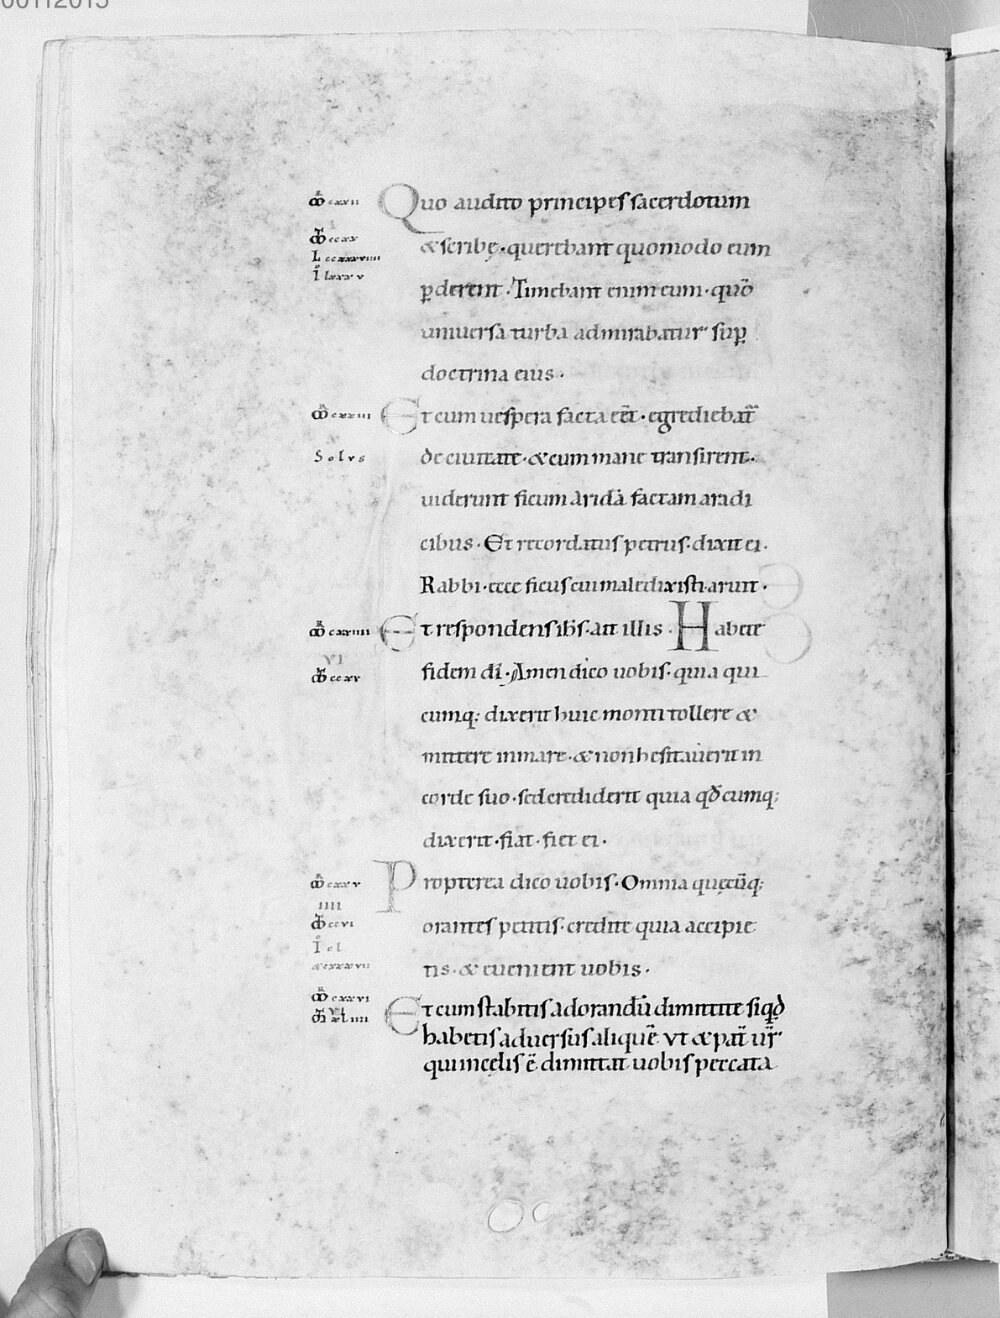 00112015
Quo audito principes sacerdotum
& scribę · querebant quomodo eum
ꝑderent · Timebant enim eum · quō
universa turba admirabatur sup̲
doctrina eius ·
Et cum vespera facta eēt · egrediebat̄
de civitate · & cum mane transirent ·
viderunt ficum aridā factam a radi
cibus · Et recordatus petrus · dixit ei ·
Rabbi · ecce ficus cui maledixisti · aruit ·
Et respondens ih̄s · ait illis · Habete
fidem dī · Amen dico vobis · quia qui
cumq; dixerit huic monti tollere &
mittere in mare · & non hesitaverit in
corde suo · sed crediderit quia qđcumq;
dixerit · fiat · fiet ei ·
Propterea dico vobis · Omnia quęcūq;
orantes petitis · credite quia accipie
tis · & evenient vobis ·
Et cum stabitis ad orandū dimittite si qđ
habetis adversus aliquē vt & pat̄ vr̄
qui in cęlis ē dimittat vobis peccata
Solvs